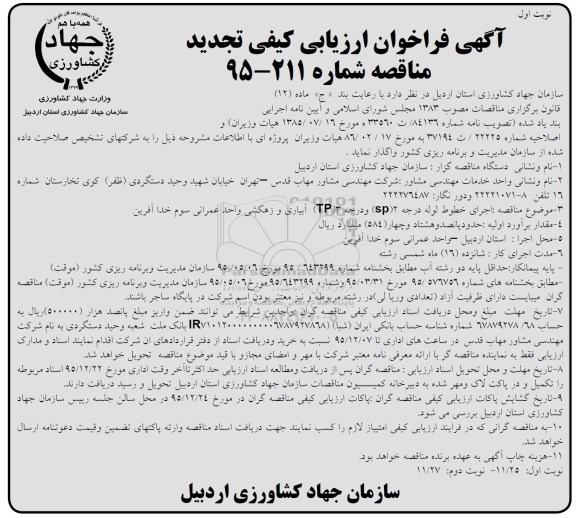 نوبت اول
همه با هم
جهاد
کشاورزی
وزارت جهاد کشاورزی
سازمان جهاد کشاورزی استان اردبیل
آگهی فراخوان ارزیابی کیفی تجدید
مناقصه شماره ۲۱۱-۹۵
سازمان جهاد کشاورزی استان اردبیل در نظر دارد با رعایت بند «ج» ماده (۱۲)
قانون برگزاری مناقصات مصوب ۱۳۸۳ مجلس شورای اسلامی و آیین نامه اجرایی
بند یاد شده (تصویب نامه شماره ۸۴۱۳۶/ت ۳۳۵۶۰ ه مورخ ۱۶/ ۰۷/ ۱۳۸۵ هیات وزیران) و
اصلاحیه شماره ۲۲۲۲۵ / ت ۳۷۱۹۴ به مورخ ۱۷ / ۰۲ / ۸۶ هیات وزیران پروژه ای با اطلاعات مشروحه ذیل را به شرکتهای تشخیص صلاحیت داده
شده از سازمان مدیریت و برنامه ریزی کشور واگذار نماید .
۱-نام ونشانی دستگاه مناقصه گزار : سازمان جهاد کشاورزی استان اردبیل
۲-نام ونشانی واحد خدمات مهندسی مشاور :شرکت مهندسی مشاور مهاب قدس –تهران خیابان شهید وحید دستگردی (ظفر) کوی تخارستان شماره
۱۶ تلفن ۸-۲۲۲۲۱۰۷۱ ودور نگار: ۲۲۲۲۷۶۴۸۷
۳-موضوع مناقصه :اجرای خطوط لوله درجه ۲(sp) ودرجه ۳(TP) آبیاری و زهکشی واحد عمرانی سوم خدا آفرین
۴-مقدار برآورد اولیه :حدودپانصدوهشتاد وچهار(۵۸۴) میلیارد ریال
۵-محل اجرا : استان اردبیل –واحد عمرانی سوم خدا آفرین
۶-مدت اجرای کار : شانزده (۱۶) ماه شمسی رشته
- پایه پیمانکار:حداقل پایه دو رشته آب مطابق بخشنامه شماره ۶۴۳۲۹۹ / ۹۵ مورخ ۹۵/۰۵/۰۶ سازمان مدیریت وبرنامه ریزی کشور (موقت)
-مطابق بخشنامه های شماره ۵۷۶۷۵۶ /۹۵ مورخ ۹۵/۰۳/۱۰وشماره ۹۵/۶۴۳۲۹۹ مورخ ۹۵/۰۵/۰۶ سازمان مدیریت وبرنامه ریزی کشور (موقت) مناقصه
گران میبایست دارای ظرفیت آزاد (تعدادی وریا لی)در رشته مربوطه و نیز معتبر بودن اسم شرکت در پایگاه ساجر باشند.
۷-تاریخ مهلت مبلغ ومحل دریافت اسناد ارزیابی کیفی مناقصه گران :واجدین شرایط می توانند ضمن واریز مبلغ پانصد هزار (۵۰۰۰۰۰)ریال به
حساب ۶۸/ ۶۷۸۸۹۲۷۸ شماره شناسه حساب بانکی ایران (شبا)
بانک ملت شعبه وحید دستگردی به نام شرکت
مهندسی مشاور مهاب قدس در ساعت های اداری تا ۹۵/۱۲/۰۷ نسبت به خرید ودریافت اسناد از دفتر قراردادهای آن شرکت اقدام نمایند اسناد و مدارک
ارزیابی فقط به نماینده مناقصه گر با ارائه معرفی نامه معتبر شرکت با مهر و امضای مجاز و با قید موضوع مناقصه تحویل خواهد شد.
۸-تاریخ مهلت و محل تحویل اسناد ارزیابی : مناقصه گران پس از دریافت ومطالعه اسناد ارزیابی حد اکثرتاآخر وقت اداری مورخ ۹۵/۱۲/۲۲ اسناد مربوطه
را تکمیل و در پاکت لاک ومهر شده به دبیرخانه کمیسسیون مناقصات سازمان جهاد کشاورزی استان اردبیل تحویل و رسید دریافت دارند.
۹-تاریخ گشایش پاکات ارزیابی کیفی مناقصه گران :پاکات ارزیابی کیفی مناقصه گران در مورخ ۹۵/۱۲/۲۴ در محل سالن جلسه رییس سازمان جهاد
کشاورزی استان اردبیل بررسی می شود.
۱۰-به مناقصه گرانی که در فرایند ارزیابی کیفی امتییاز لازم را کسب نمایند جهت دریافت اسناد مناقصه وارئه پاکتهای تضمین وقیمت دعوتنامه ارسال
خواهد شد.
۱۱-هزینه چاپ آگهی به عهده برنده مناقصه خواهد بود.
نوبت اول: ۱۱/۲۵- نوبت دوم: ۱۱/۲۷
سازمان جهاد کشاورزی اردبیل